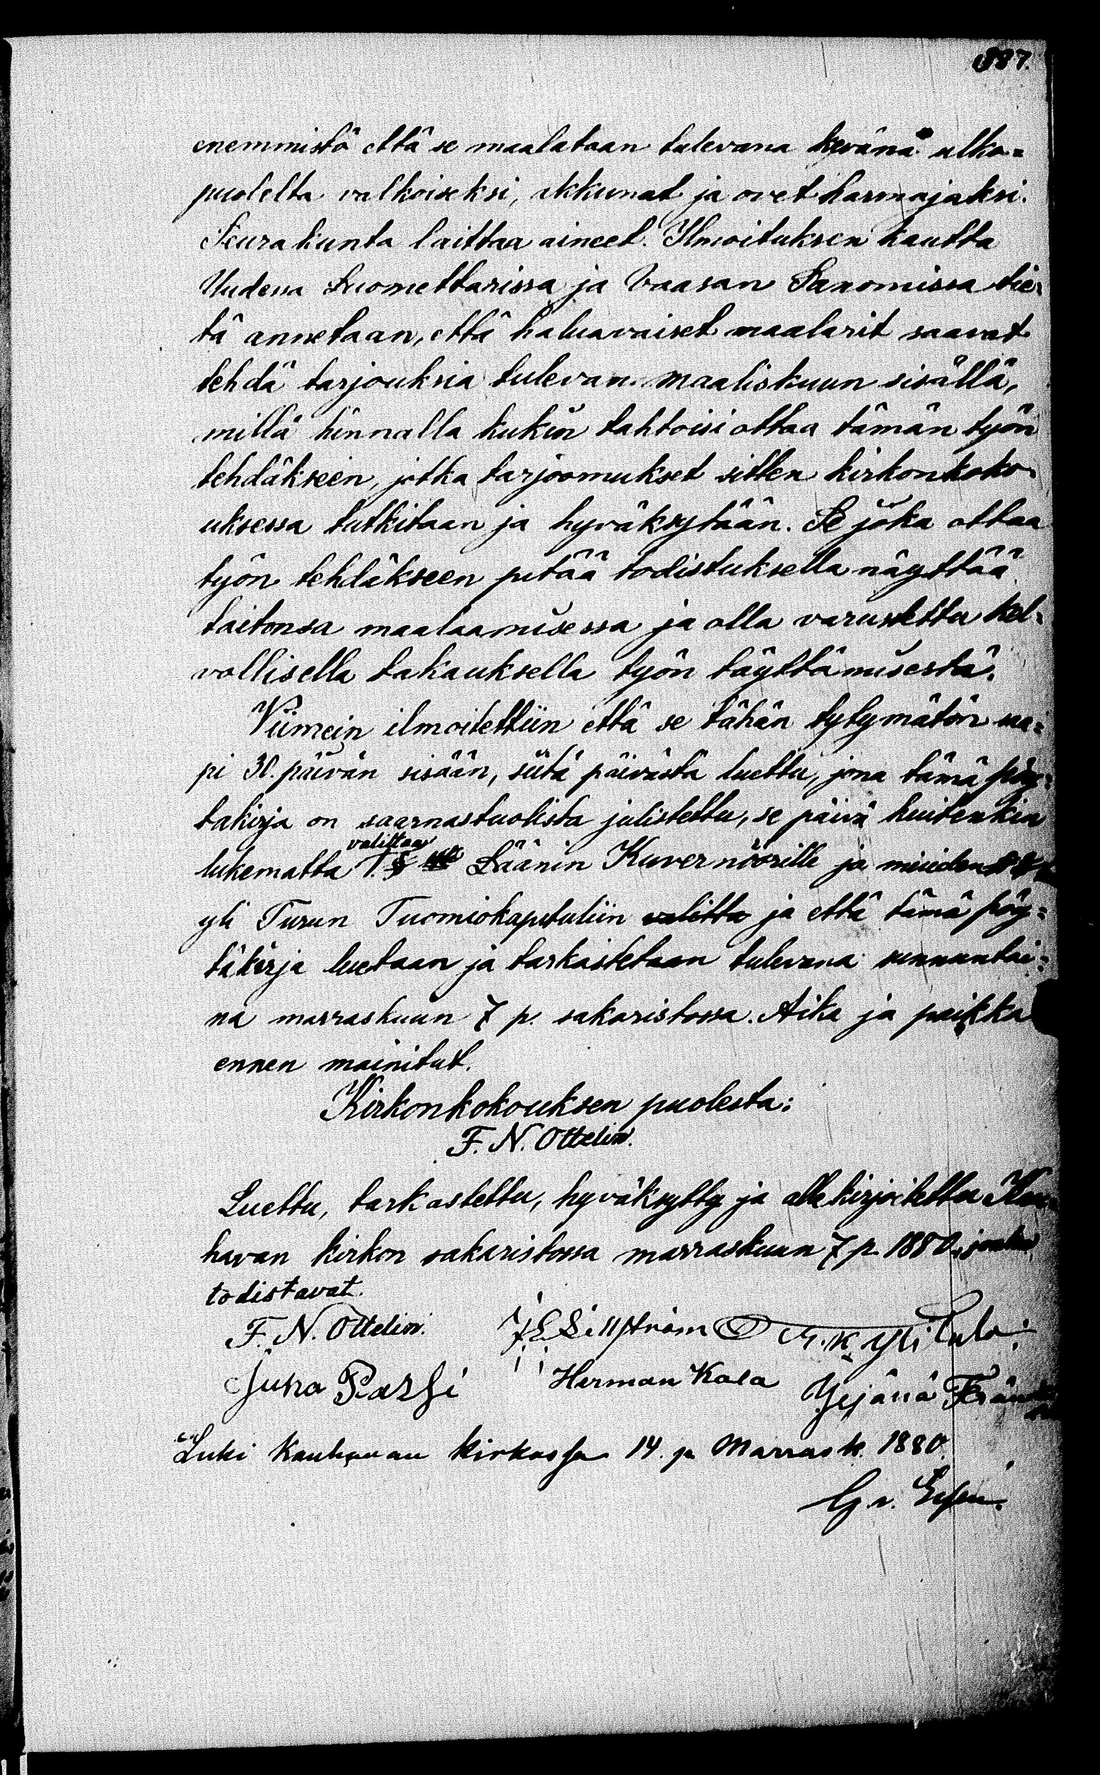 387.
enemmistö että se maalataan tulevana kevänä ulko=
puolelta valkoiseksi, akkunat ja ovet harmajaksi.
Seurakunta laittaa aineet. Ilmoituksen kautta
Uudessa Suomettarissa ja Vaasan Sanomissa tie=
tä annetaan, että haluavaiset maalarit saavat
tehdä tarjouksia tulevan maaliskuun sisällä,
millä hinnalla kukin tahtoisi ottaa tämän työn
tehdäkseen, jotka tarjoomukset sitten kirkonkoko=
uksessa tutkitaan ja hyväksytään. Se joka ottaa
työn tehdäkseen pitää todistuksella näyttää
taitonsa maalaamisessa ja olla varustettu kel=
vollisella takauksella työn täyttämisestä.
Viimein ilmoitettiin että se tähän tytymätön saa=
pi 30. päivän sisään, siitä päivästä luettu, jona tämä pöy=
täkirja on saarnastuolista julistettu, se päivä kuitenkin
valittaa
lukematta 1. § Läänin Kuvernöörille ja muiden
yli Turun Tuomiokapituliin valitta ja että tämä pöy=
täkirja luetaan ja tarkastetaan tulevana sunnuntai=
na marraskuun 7 p. sakaristossa. Aika ja paikka
ennen mainitut.
Kirkonkokouksen puolesta:
F. N. Ottelin.
Luettu, tarkastettu, hyväksytty ja allekirjoitettu Kau=
havan kirkon sakaristossa marraskuun 7 p. 1880, jonka
todistavat.
F. N. Ottelin. Sillström Yli
Juha Passi Herman Kala Yrjänä
Luki Kauhavan kirkossa 14. p. Marrask. 1880.
G. v.